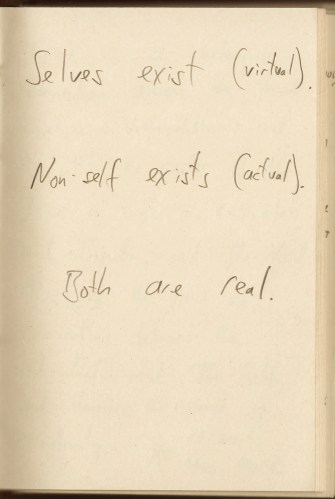 Selves exist (virtual).
Non-self exists (actual).
Both are real.